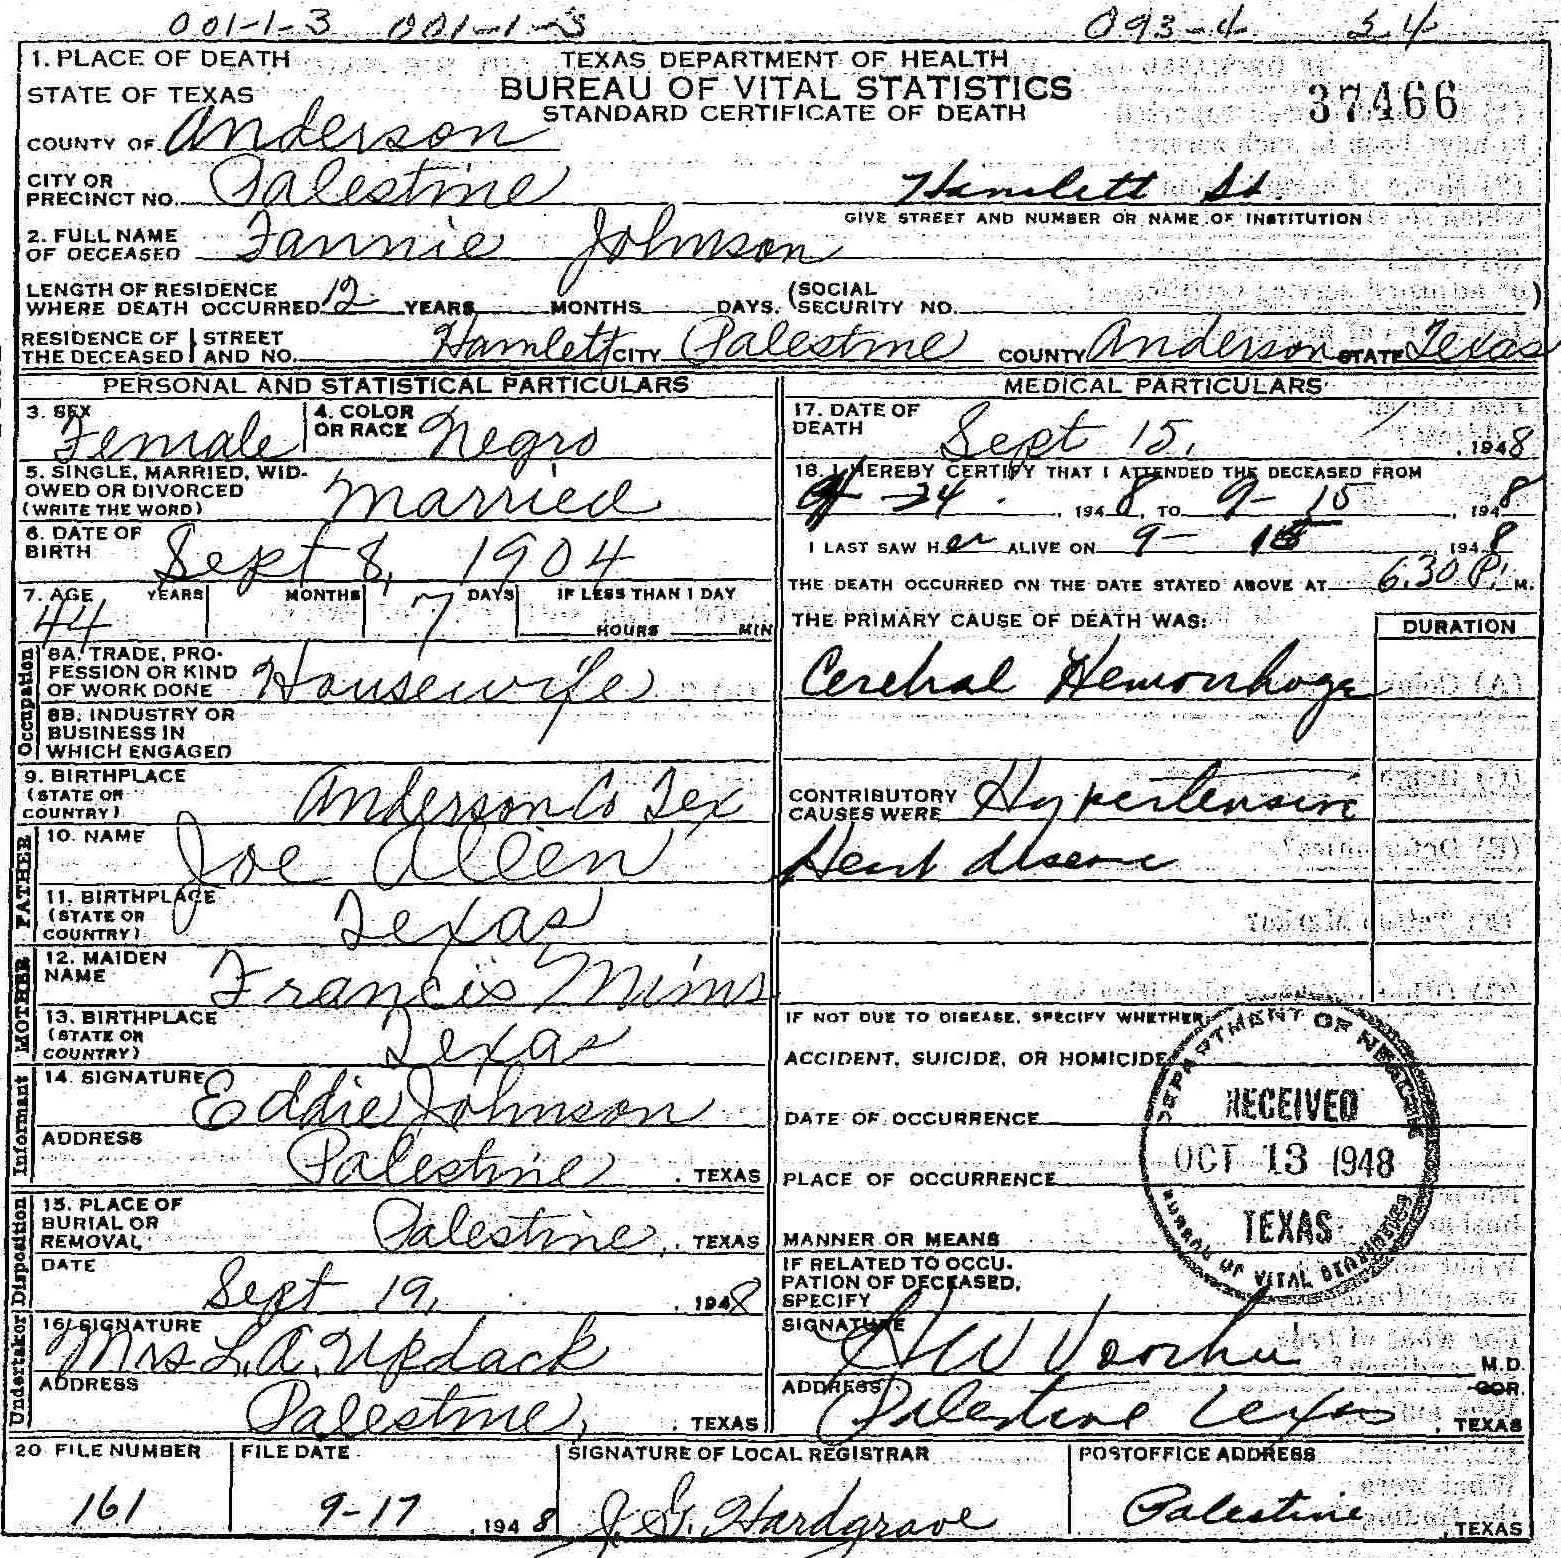 001-1-3 001-1-3 093-4 24
1. PLACE OF DEATH
STATE OF TEXAS
COUNTY OF Anderson
TEXAS DEPARTMENT OF HEALTH
BUREAU OF VITAL STATISTICS
STANDARD CERTIFICATE OF DEATH
37466
CITY OR
PRECINCT NO. Palestine Hamlett St.
GIVE STREET AND NUMBER OR NAME OF INSTITUTION
2. FULL NAME
OF DECEASED Fannie Johnson
LENGTH OF RESIDENCE
WHERE DEATH OCCURRED 12 YEARS MONTHS DAYS. (SOCIAL
SECURITY NO. )
RESIDENCE OF THE DECEASED STREET AND NO. Hamlett CITY Palestine COUNTY Anderson STATE Texas
PERSONAL AND STATISTICAL PARTICULARS
3. SEX Female
4. COLOR
OR RACE Negro
5. SINGLE, MARRIED, WID-
OWED OR DIVORCED
(WRITE THE WORD) Married
6. DATE OF
BIRTH Sept 8, 1904
7. AGE YEARS MONTHS DAYS IF LESS THAN 1 DAY
44 7 HOURS MIN
Occupation
8A. TRADE, PRO-
FESSION OR KIND
OF WORK DONE Housewife
8B. INDUSTRY OR
BUSINESS IN
WHICH ENGAGED
9. BIRTHPLACE
(STATE OR
COUNTRY) Anderson Co Tex
FATHER
10. NAME Joe Allen
11. BIRTHPLACE
(STATE OR
COUNTRY) Texas
MOTHER
12. MAIDEN
NAME Francis Mims
13. BIRTHPLACE
(STATE OR
COUNTRY) Texas
Informant
14. SIGNATURE Eddie Johnson
ADDRESS Palestine, TEXAS
Disposition
15. PLACE OF
BURIAL OR
REMOVAL Palestine, TEXAS
DATE Sept 19, 1948
Undertaker
16. SIGNATURE
Mrs L.A. Updack
ADDRESS
Palestine, TEXAS
MEDICAL PARTICULARS
17. DATE OF
DEATH Sept 15, 1948
18. I HEREBY CERTIFY THAT I ATTENDED THE DECEASED FROM
24 1948, TO 9-15, 1948
I LAST SAW HER ALIVE ON 9- 15 1948
THE DEATH OCCURRED ON THE DATE STATED ABOVE AT 6.30 P. M.
THE PRIMARY CAUSE OF DEATH WAS: DURATION
Cerebral Hemorrhage
CONTRIBUTORY
CAUSES WERE Hypertensive
Heart disease
IF NOT DUE TO DISEASE, SPECIFY WHETHER
ACCIDENT, SUICIDE, OR HOMICIDE
DATE OF OCCURRENCE
PLACE OF OCCURRENCE
MANNER OR MEANS
IF RELATED TO OCCU-
PATION OF DECEASED,
SPECIFY
DEPARTMENT OF HEALTH
RECEIVED
OCT 13 1948
TEXAS
BUREAU OF VITAL STATISTICS
SIGNATURE
H W M.D.
COR.
ADDRESS
Palestine Texas, TEXAS
20 FILE NUMBER FILE DATE SIGNATURE OF LOCAL REGISTRAR POSTOFFICE ADDRESS
161 9-17, 1948 J. G. Hardgrave Palestine, TEXAS